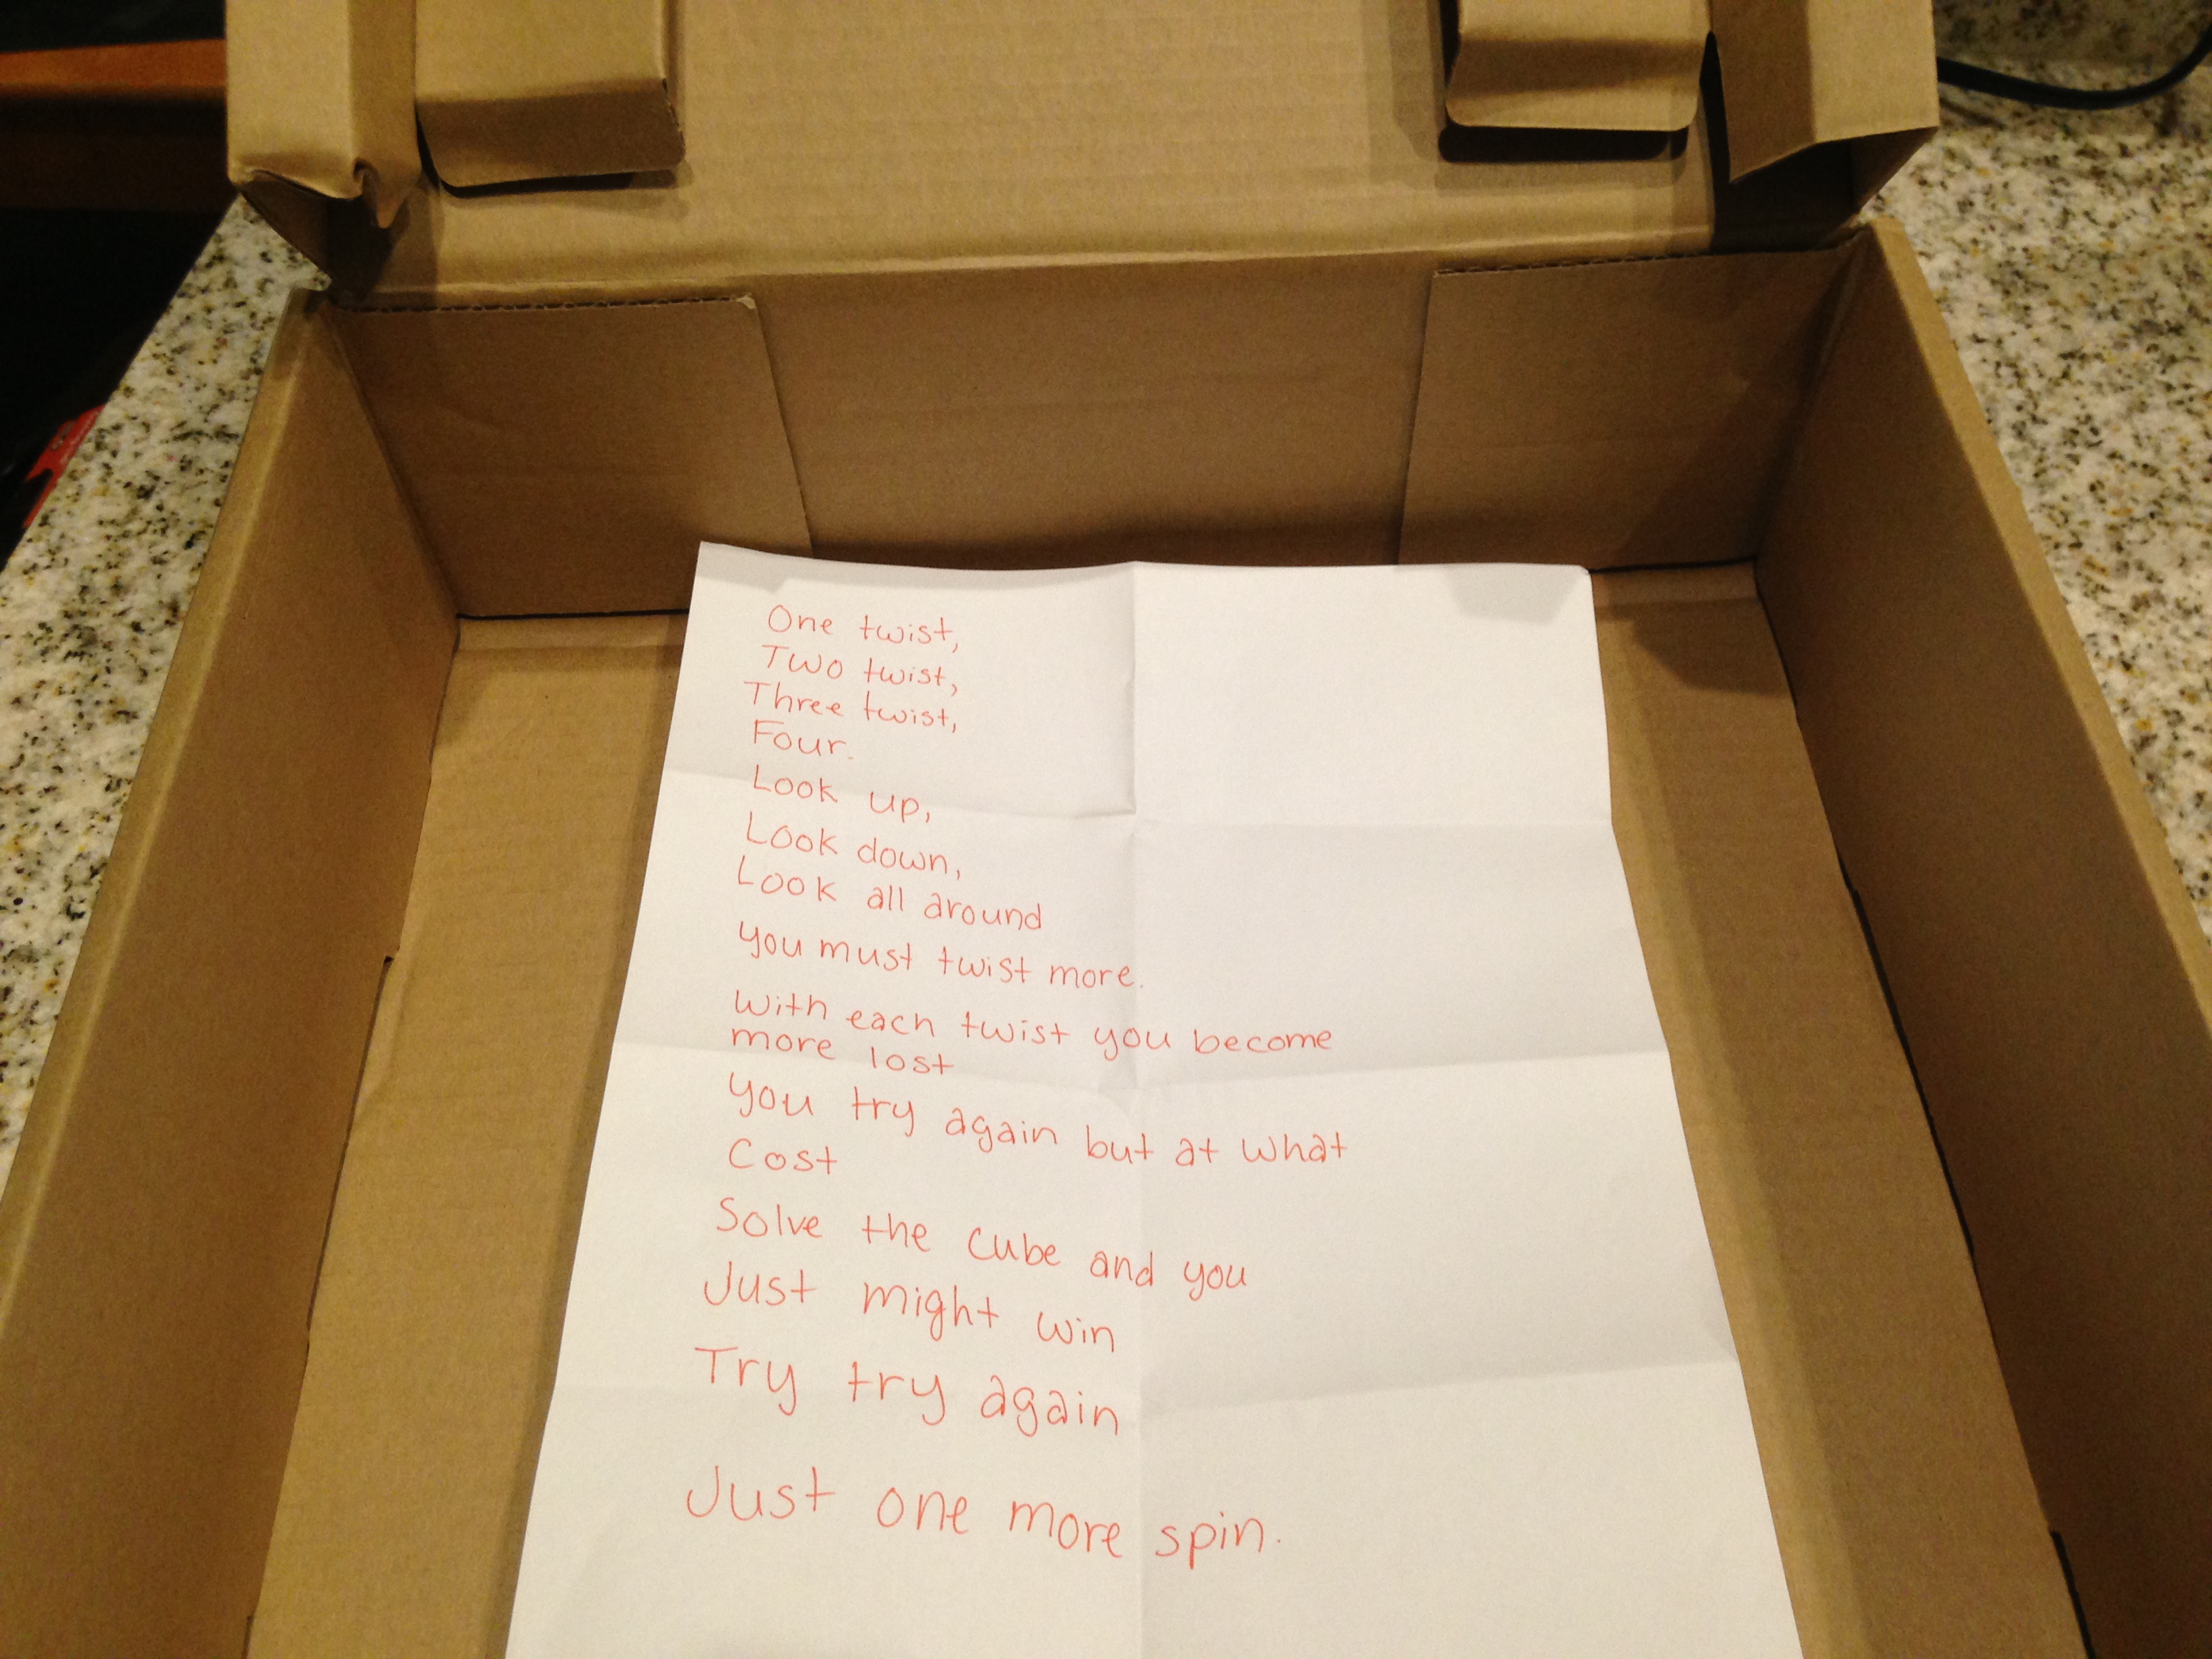 One twist,
Two twist,
Three twist,
Four.
Look up,
Look down,
Look all around
you must twist more.
With each twist you become
more lost
you try again but at what
Cost
Solve the cube and you
Just might win
Try try again
Just one more spin.